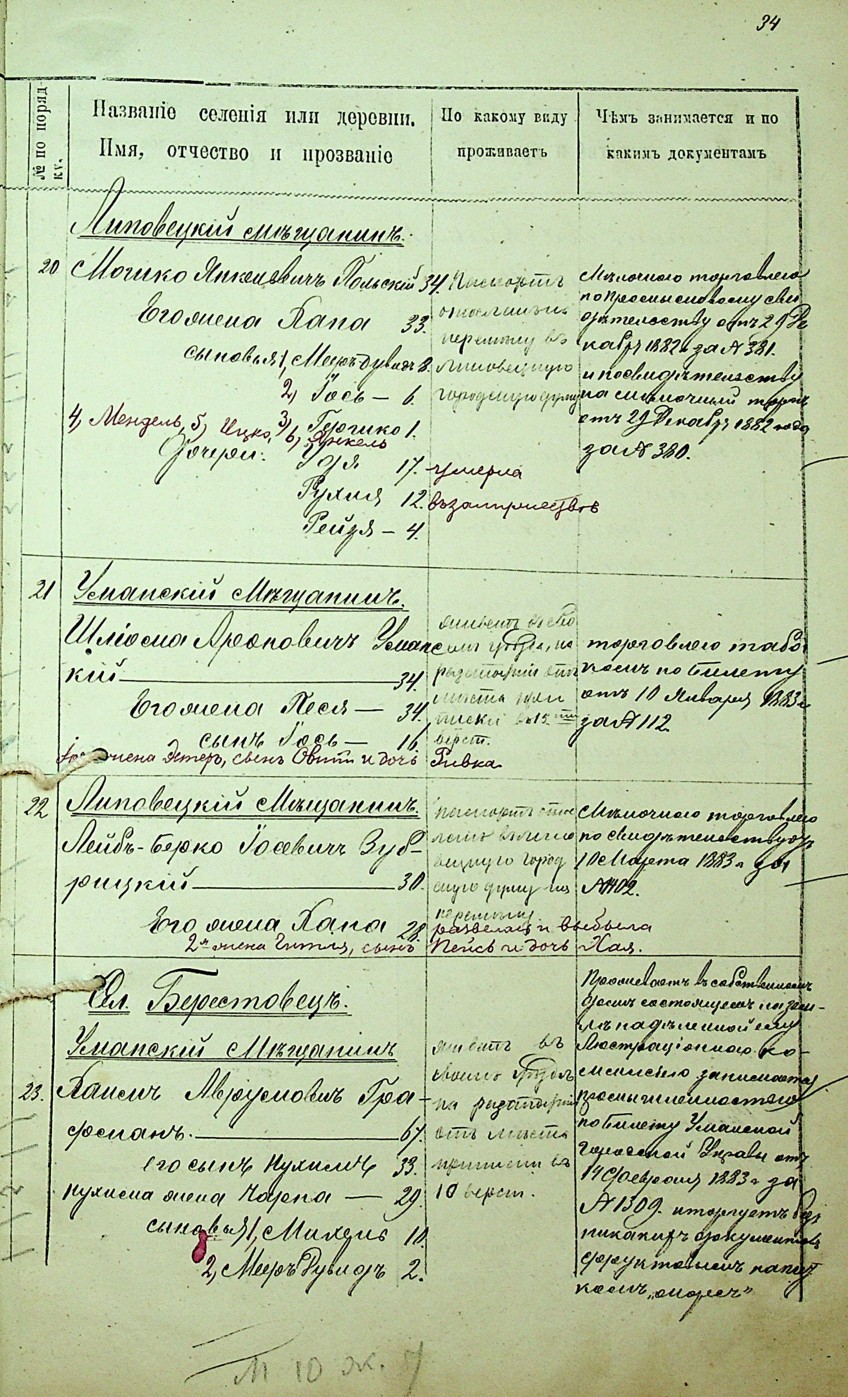 34
№ по поряд-
ку.
Названіе селенія или деревни.
Имя, отчество и прозваніе
По какому виду
проживаетъ
Чѣмъ занимается и по
какимъ документамъ
Липовецкій мѣщанинъ.
20 Мошко Янкелевичъ Польскій 34.
Его жена Хана 33.
сыновья 1, Мееръ-Дувидъ 8.
2, Іось — 6.
3, Гершко 1.
4, Мендель, 5, Ицко, 6, Янкель
Дочери: 17.
Рухля 12.
Рейзя — 4.
Паспортъ
отосланъ
перемѣну въ
Липовецкую
городскую думу
умерла
въ замужествѣ
Мѣлочною торговлею
по промысловому сви-
дѣтельству отъ 29 Де-
кабря 1882 г за № 381.
и по свидѣтельству
на мѣлочный торгъ
отъ 29 Декабря 1882 года
за № 380.
21 Уманскій Мѣщанинъ.
Шліома Ароновичъ Уманс
кій — 34.
Его жена Песя — 34.
сынъ Іось — 16.
жена Эстеръ, сынъ и дочь Ривка.
живетъ въ сво
емъ уѣздѣ, на
разстояніи отъ
мѣста при
писки въ 15
верст.
торговлею таба-
комъ по билету
отъ 10 Января 1883 г
за № 112.
22 Липовецкій Мѣщанинъ.
Лейбъ-Берко Іосевичъ Зуб-
рицкій — 30.
Его жена Хана 28.
2я жена Гитля, сынъ Пейсъ и дочь Хая.
паспортъ отос
ланъ въ Липо
вецкую город
скую думу на
перемѣну
развелась и выбыла
Мѣлочною торговлею
по свидѣтельству отъ
10 Марта 1883 г за
№ 402.
Сл. Берестовецъ.
Уманскій Мѣщанинъ
23. Хаимъ Аврумовичъ Гра-
фманъ. — 67.
его сынъ Нухимъ 33.
Нухима жена Чарна — 29.
сыновья 1, Михель 10.
2, Мееръ Дувидъ 2.
живетъ въ
своемъ уѣздѣ
на разстояніи
отъ мѣста
приписки въ
10 верст.
Проживаетъ въ собственномъ
домѣ состоящемъ на зем-
лѣ надѣленной ему
Люстраціонною ко-
мисіею занимается
промышленностью
по билету Уманской
Городской Управы отъ
14 февраля 1883 г за
№ 1309. и торгуетъ безъ
никакихъ документовъ
фруктовымъ напит
комъ „морсъ"